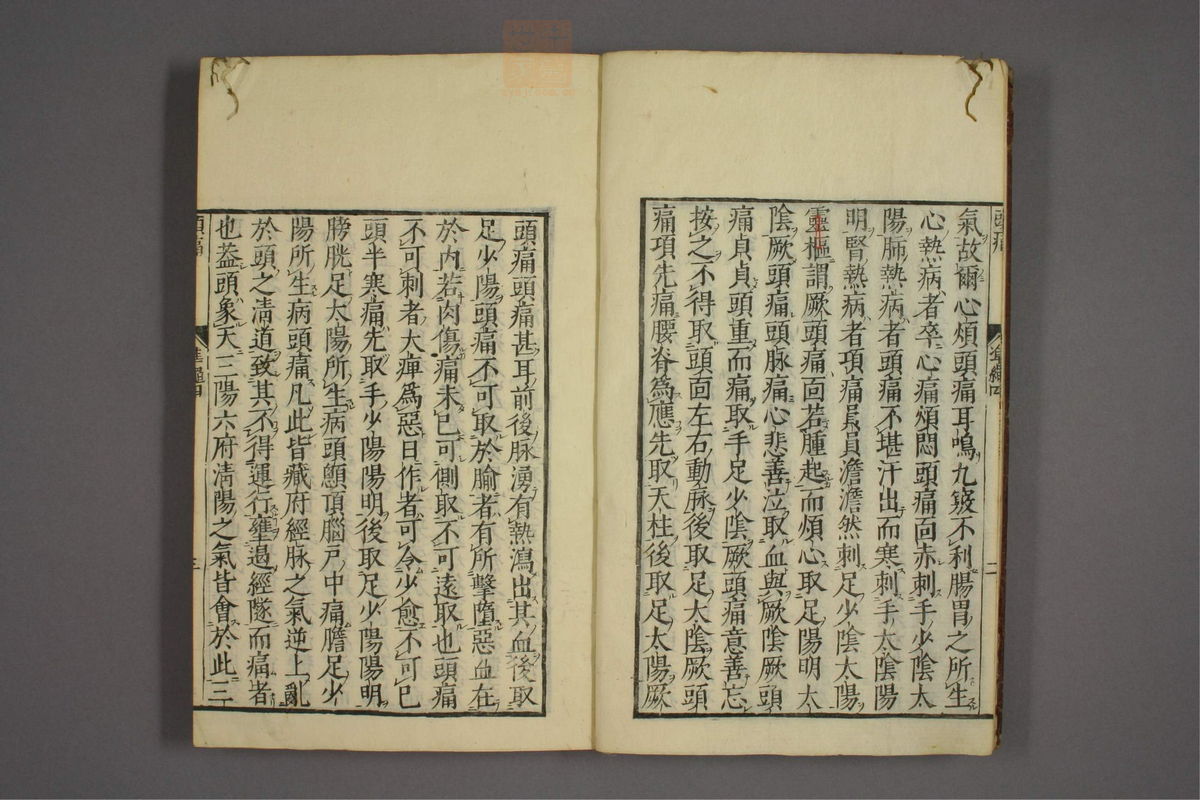 頭痛
準繩四
二
氣故爾心煩頭痛耳鳴九竅不利腸胃之所生
心熱病者卒心痛煩悶頭痛面赤刺手少陰太
陽肺熱病者頭痛不堪汗出而寒刺手太陰陽
明腎熱病者項痛員員澹澹然刺足少陰太陽
靈樞謂厥頭痛面若腫起而煩心取足陽明太
陰厥頭痛頭脉痛心悲善泣取血與厥陰厥頭
痛貞貞頭重而痛取手足少陰厥頭痛意善忘
按之不得取頭面左右動脉後取足太陰厥頭
痛項先痛腰脊為應先取天柱後取足太陽厥
頭痛頭痛甚耳前後脉湧有熱瀉出其血後取
足少陽頭痛不可取於腧者有所擊墮惡血在
於内若肉傷痛未已可側取不可遠取也頭痛
不可刺者大痺為惡日作者可令少愈不可已
頭半寒痛先取手少陽陽明後取足少陽陽明
膀胱足太陽所生病頭顖頂腦戸中痛膽足少
陽所生病頭痛凡此皆藏府經脉之氣逆上亂
於頭之清道致其不得運行壅遏經隧而痛者
也蓋頭象天三陽六府清陽之氣皆會於此三
頭痛
準繩四
三